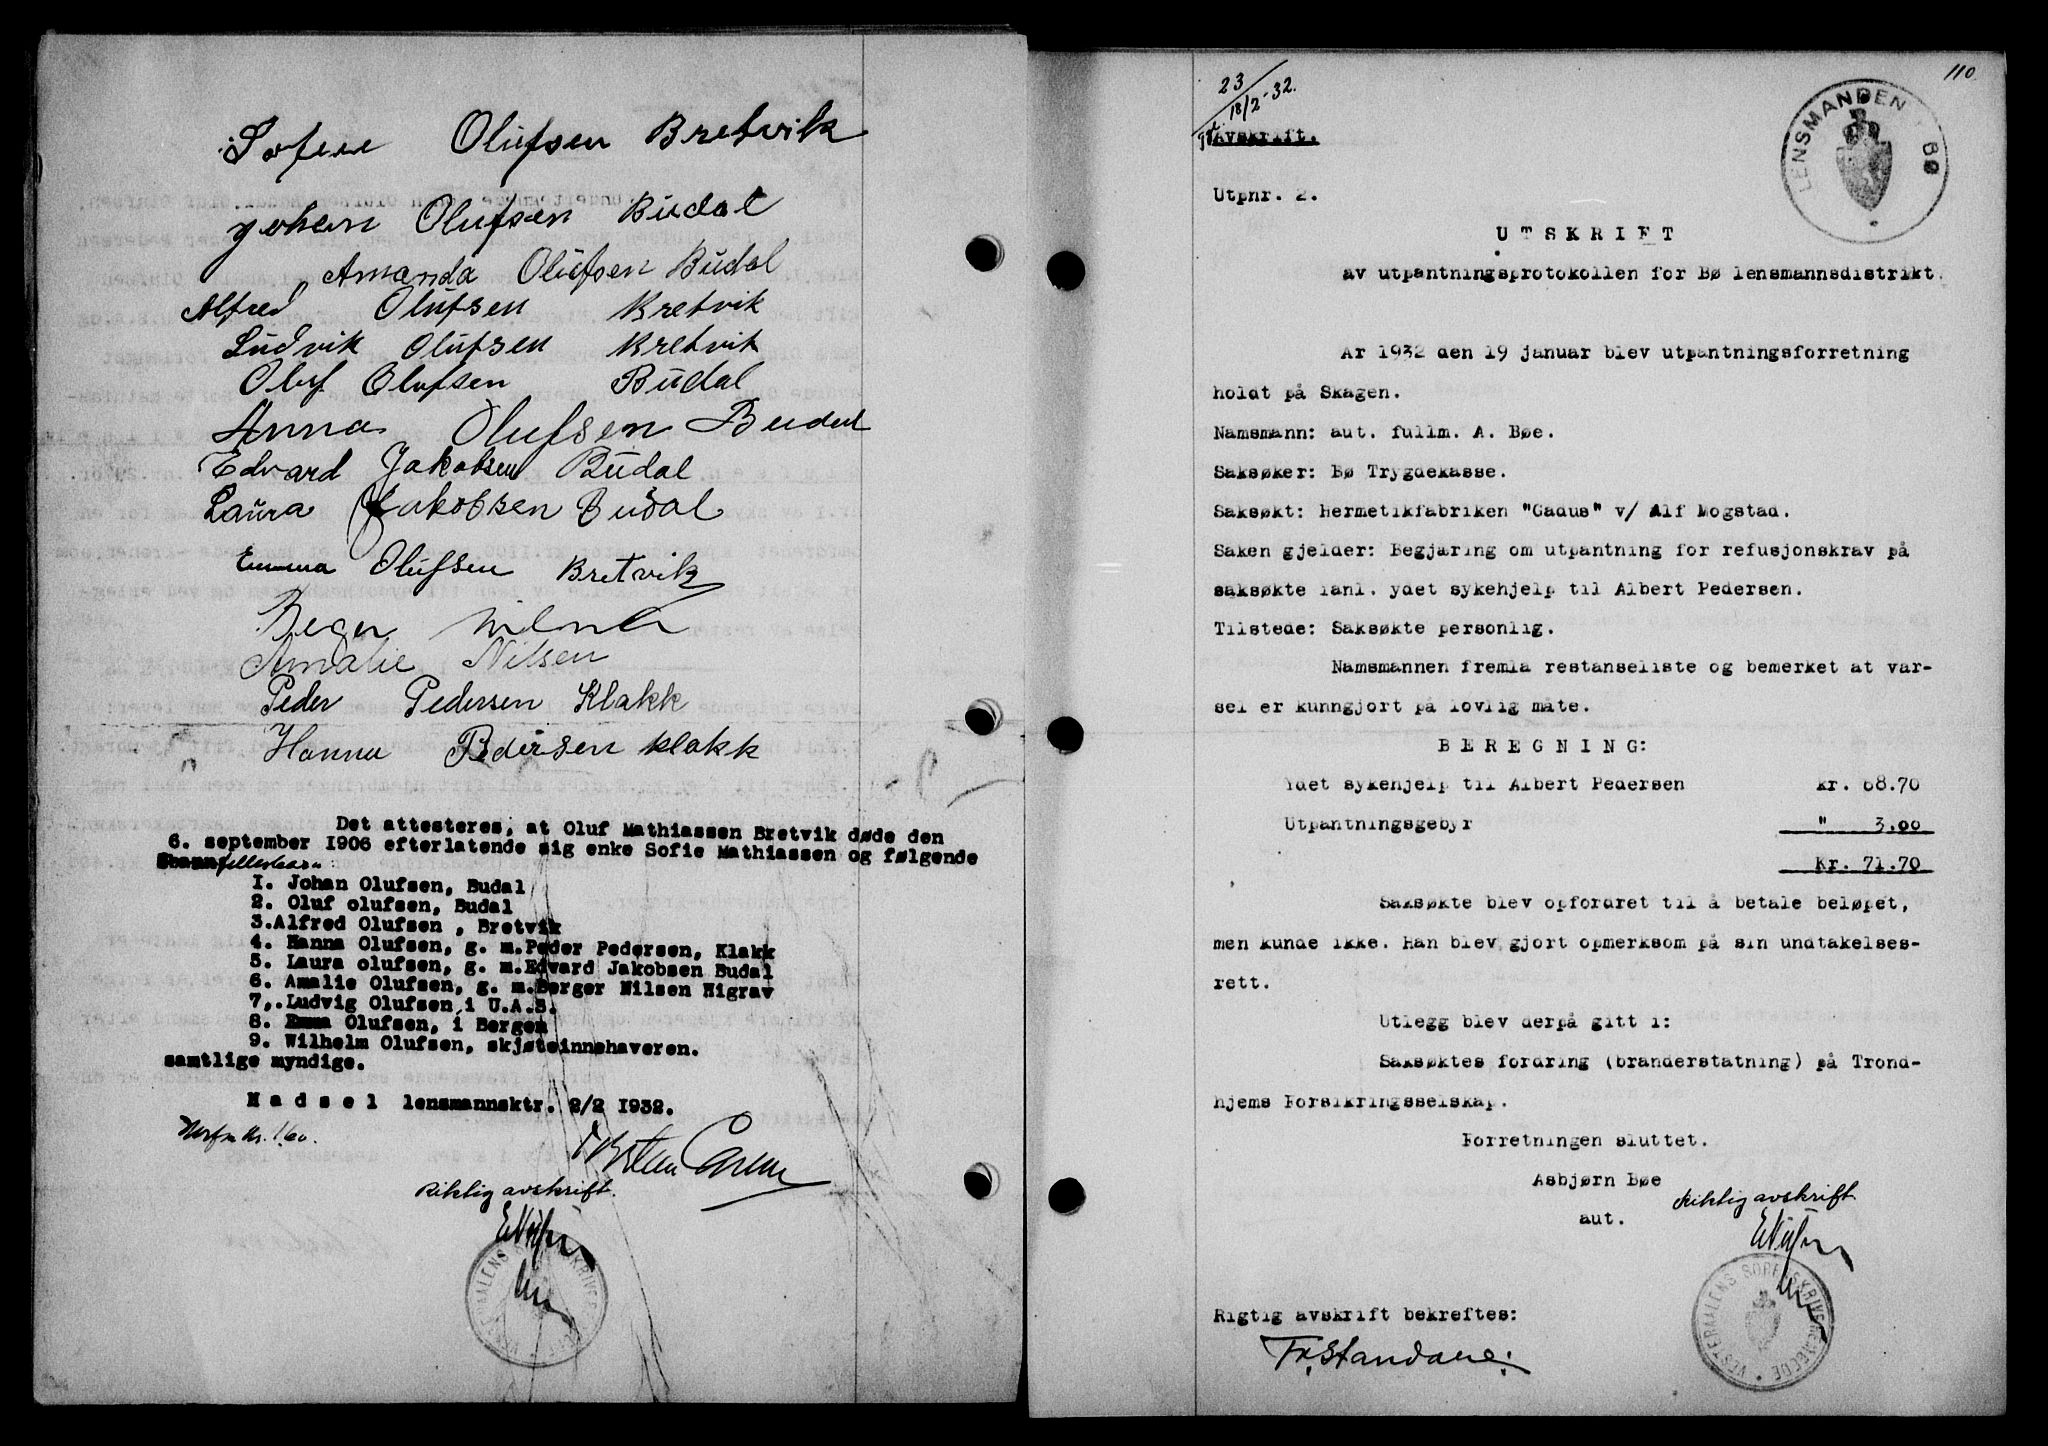 Sofie Olufsen Bretvik
Johan Olufsen Budal
Amanda Olufsen Budal
Alfred Olufsen Bretvik
Ludvik Olufsen Bretvik
Oluf Olufsen Budal
Anna Olufsen Budal
Edvard Jakobsen Budal
Laura Jakobsen Budal
Emma Olufsen Bretvik
Amalie Nilsen
Peder Pedersen Klakk
Hanna Pedersen Klakk
Det attesteres, at Oluf Mathiassen Bretvik døde den
6. september 1906 efterlatende sig enke Sofie Mathiassen og følgende
fellesbarn:
1. Johan Olufsen, Budal
2. Oluf olufsen, Budal
3.Alfred Olufsen , Bretvik
4. Hanna Olufsen, g. m.Peder Pedersen, Klakk
5. Laura olufsen, g. m.Edvard Jakobsen Budal
6. Amalie Olufsen, g. m.Berger Nilsen Higrav
7,.Ludvig Olufsen i U.A.S.
8. Emma Olufsen, i Bergen
9. Wilhelm Olufsen, skjøteinnehaveren.
samtlige myndige.
H a d s e l lensmannsktr. 2/2 1932.
kr. 1.60.
Riktig avskrift.
110
23
18/2-32.
LENSMANDEN I BØ
Avskrift.
Utpnr. 2.
U T S K R I F T
av utpantningsprotokollen for Bø lensmannsdistrikt.
År 1932 den 19 januar blev utpantningsforretning
holdt på Skagen.
Namsmann: aut. fullm. A. Bøe.
Saksøker: Bø Trygdekasse.
Saksøkt: Hermetikfabriken "Gadus" v/ Alf Mogstad.
Saken gjelder: Begjæring om utpantning for refusjonskrav på
saksøkte ianl. ydet sykehjelp til Albert Pedersen.
Tilstede: Saksøkte personlig.
Namsmannen fremla restanseliste og bemerket at var-
sel er kunngjort på lovlig måte.
B E R E G N I N G:
Ydet sykehjelp til Albert Pedersen kr. 68.70
Utpantningsgebyr " 3.00
Kr. 71.70
Saksøkte blev opfordret til å betale beløpet,
men kunde ikke. Han blev gjort opmerksom på sin undtakelses-
rett.
Utlegg blev derpå gitt i:
Saksøktes fordring (branderstatning) på Trond-
hjems Forsikringsselskap.
Forretningen sluttet.
Asbjørn Bøe
aut.
Riktig avskrift
VESTERAALENS SORENSKRIVEREMBEDE
Rigtig avskrift bekreftes: